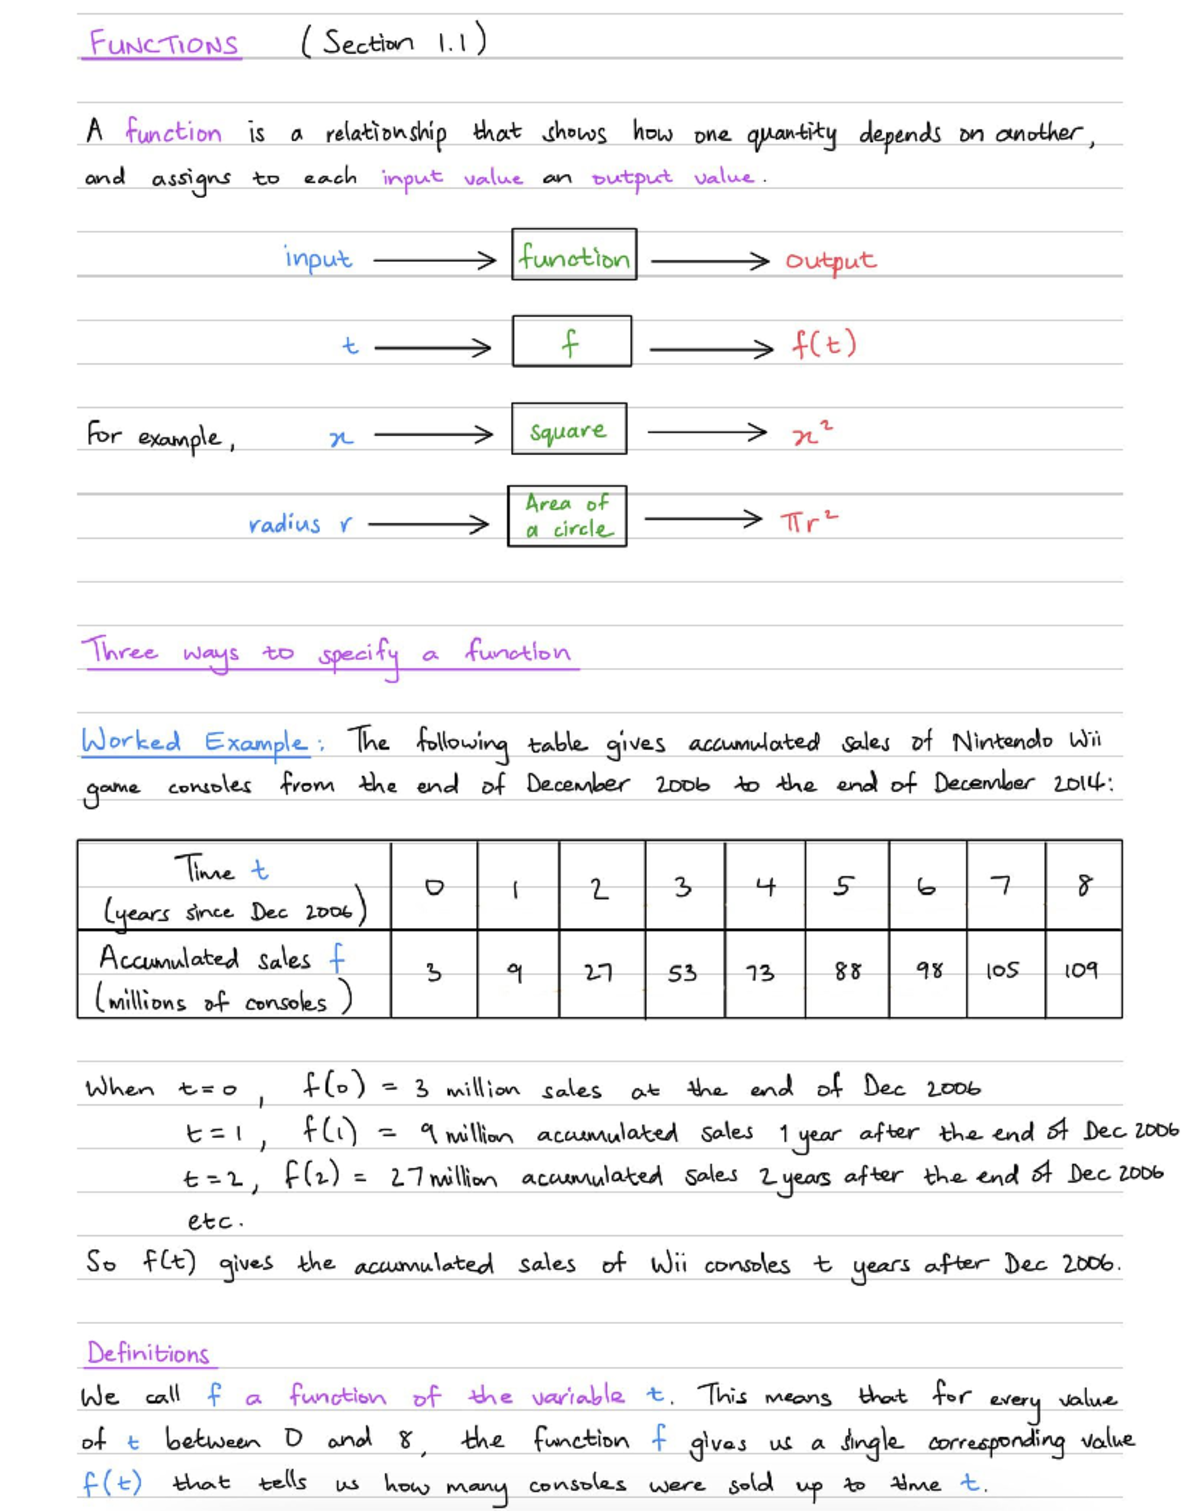 FUNCTIONS (Section 1.1)
A function is a relationship that shows how one quantity depends on another,
and assigns to each input value an output value.
input → function → output
t → f → f(t)
For example, x → square → x²
radius r → Area of a circle → πr²
Three ways to specify a function
Worked Example: The following table gives accumulated sales of Nintendo Wii
game consoles from the end of December 2006 to the end of December 2014:
Time t (years since Dec 2006) 0 1 2 3 4 5 6 7 8
Accumulated sales f (millions of consoles) 3 9 27 53 73 88 98 105 109
When t=0, f(0) = 3 million sales at the end of Dec 2006
t=1, f(1) = 9 million accumulated sales 1 year after the end of Dec 2006
t=2, f(2) = 27 million accumulated sales 2 years after the end of Dec 2006
etc.
So f(t) gives the accumulated sales of Wii consoles t years after Dec 2006.
Definitions
We call f a function of the variable t. This means that for every value
of t between 0 and 8, the function f gives us a single corresponding value
f(t) that tells us how many consoles were sold up to time t.